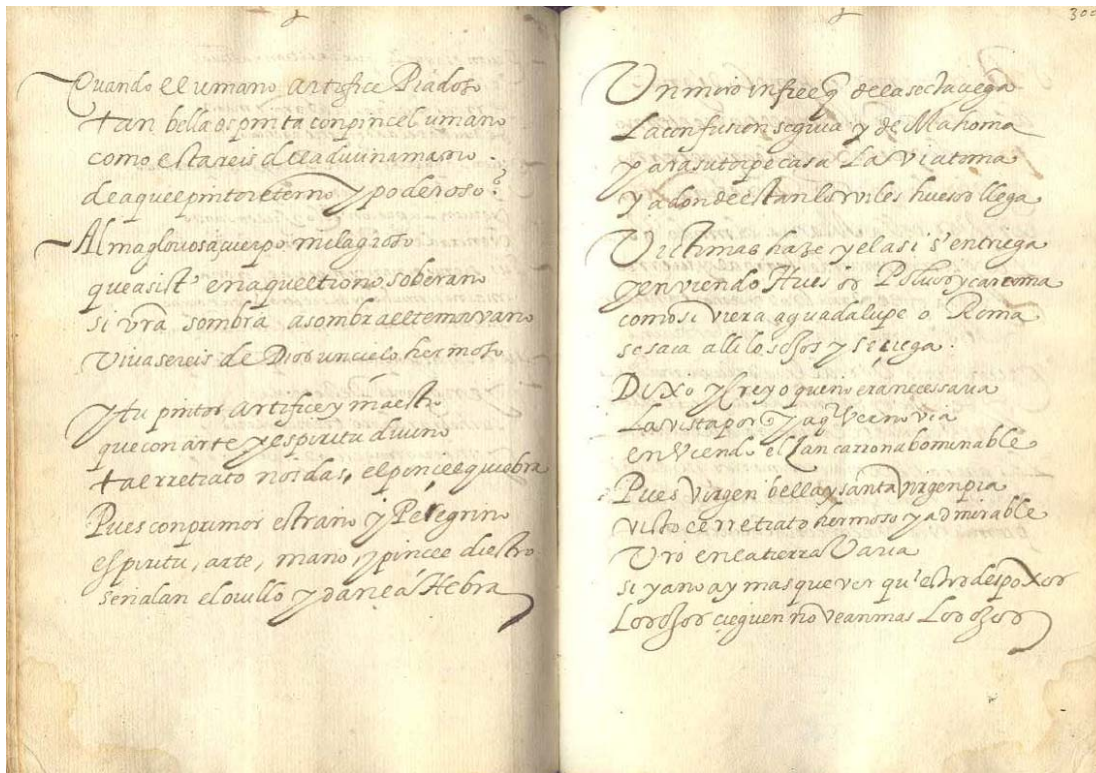 Quando el umano artifice Piadoso
tan bella os pinta con pincel umano
como estareis de la diuina mano
de aquel pintor eterno y poderoso?
Alma gloriosa, cuerpo milagroso
que asist^e en aquel trono soberano
si vrã sombra asombra el temor vano
Viua sereis de Dios un cielo hermoso
y tu pintor artifice y maestro
que con arte y espiritu diuino
tal rretrato nos das, el pincel quiebra
Pues con primor estraño y Peregrino
espiritu, arte, mano, y pincel diestro
señalan el ouillo y dan la Hebra
300
Un moro infiel q̃ de la secta ciega
La confusion seguia y de Mahoma
para su torpe casa La via toma
y a donde estan los viles huesos llega
Victimas haze y el asi s'entriega
y en viendo Huesos Poluos y carcoma
como si viera a guadalupe o Roma
se saca alli los ojos y se ciega.
Dixo y Creyo que no era necessaria
La vista por q̃ ya q̃ Ver no via
en Viendo el çancarron abominable
Pues Virgen bella y santa virgen pia
visto el rretrato hermoso y admirable
Vro en la tierra Varia
si ya no ay mas que ver qu'estos despoxos
Los ojos cieguen no vean mas Los ojos